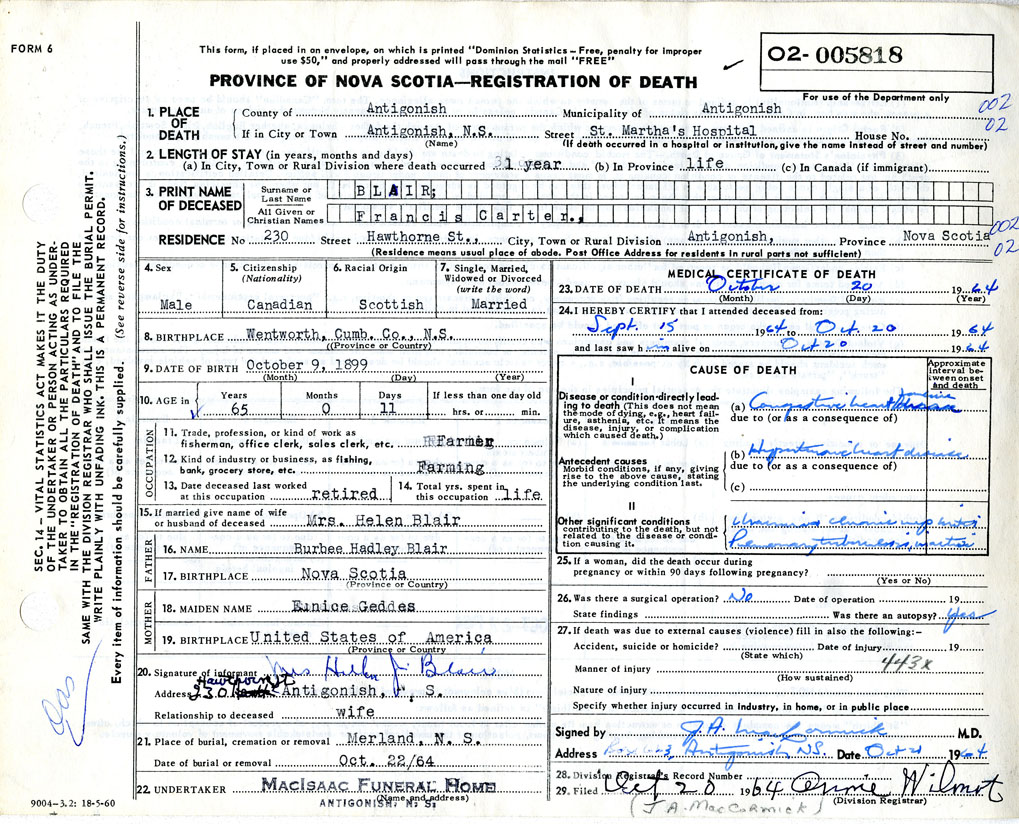 FORM 6
This form, if placed in an envelope, on which is printed "Dominion Statistics – Free, penalty for improper
use $50," and properly addressed will pass through the mail "FREE"
02-005818
PROVINCE OF NOVA SCOTIA—REGISTRATION OF DEATH
For use of the Department only
002
02
1. PLACE OF DEATH
County of Antigonish Municipality of Antigonish
If in City or Town Antigonish, N.S. Street St. Martha's Hospital House No.
(Name) (If death occurred in a hospital or institution, give the name instead of street and number)
2. LENGTH OF STAY (in years, months and days)
(a) In City, Town or Rural Division where death occurred 31 year (b) In Province life (c) In Canada (if immigrant)
3. PRINT NAME OF DECEASED
Surname or Last Name BLAIR;
All Given or Christian Names Francis Carter.,
002
02
RESIDENCE No 230 Street Hawthorne St., City, Town or Rural Division Antigonish, Province Nova Scotia
(Residence means usual place of abode. Post Office Address for residents in rural parts not sufficient)
4. Sex
Male
5. Citizenship
(Nationality)
Canadian
6. Racial Origin
Scottish
7. Single, Married, Widowed or Divorced
(write the word)
Married
8. BIRTHPLACE Wentworth, Cumb. Co., N.S.
(Province or Country)
9. DATE OF BIRTH October 9, 1899
(Month) (Day) (Year)
10. AGE in Years Months Days If less than one day old
65 0 11 hrs. or min.
OCCUPATION
11. Trade, profession, or kind of work as
fisherman, office clerk, sales clerk, etc. Farmer
12. Kind of industry or business, as fishing,
bank, grocery store, etc. Farming
13. Date deceased last worked
at this occupation retired
14. Total yrs. spent in
this occupation life
15. If married give name of wife
or husband of deceased Mrs. Helen Blair
FATHER
16. NAME Burbee Hadley Blair
17. BIRTHPLACE Nova Scotia
(Province or Country)
MOTHER
18. MAIDEN NAME Eunice Geddes
19. BIRTHPLACE United States of America
(Province or Country)
20. Signature of informant Mrs Helen J. Blair
Address 230 Hawthorn St Antigonish, N. S.
Relationship to deceased wife
21. Place of burial, cremation or removal Merland, N. S.
Date of burial or removal Oct. 22/64
22. UNDERTAKER MACISAAC FUNERAL HOME
(Name and address)
ANTIGONISH, N. S.
9004-3.2: 18-5-60
MEDICAL CERTIFICATE OF DEATH
23. DATE OF DEATH October 20 1964
(Month) (Day) (Year)
24. I HEREBY CERTIFY that I attended deceased from:
Sept. 15 1964 to Oct. 20 1964
and last saw him alive on Oct 20 1964
CAUSE OF DEATH
Approximate interval between onset and death
I
Disease or condition directly leading to death (This does not mean the mode of dying, e.g., heart failure, asthenia, etc. It means the disease, injury, or complication which caused death.)
(a) Congestive heart
due to (or as a consequence of)
Antecedent causes
Morbid conditions, if any, giving rise to the above cause, stating the underlying condition last.
(b) Hypertensive heart disease
due to (or as a consequence of)
(c)
II
Other significant conditions
contributing to the death, but not related to the disease or condition causing it.
Uraemia chronic nephritis
Pulmonary tuberculosis, inactive
25. If a woman, did the death occur during
pregnancy or within 90 days following pregnancy?
(Yes or No)
26. Was there a surgical operation? No Date of operation 19
State findings Was there an autopsy? Yes
27. If death was due to external causes (violence) fill in also the following:–
Accident, suicide or homicide? Date of injury 19
(State which)
443x
Manner of injury
(How sustained)
Nature of injury
Specify whether injury occurred in industry, in home, or in public place
Signed by J.A. MacCormick M.D.
Address Antigonish NS. Date Oct 21 1964
28. Division Registrar's Record Number
29. Filed Oct 20 1964 Anne Wilmot
(Division Registrar)
(J A. MacCormick)
SEC. 14 – VITAL STATISTICS ACT MAKES IT THE DUTY
OF THE UNDERTAKER OR PERSON ACTING AS UNDER-
TAKER TO OBTAIN ALL THE PARTICULARS REQUIRED
IN THE "REGISTRATION OF DEATH" AND TO FILE THE
SAME WITH THE DIVISION REGISTRAR WHO SHALL ISSUE THE BURIAL PERMIT.
WRITE PLAINLY WITH UNFADING INK. THIS IS A PERMANENT RECORD.
Every item of information should be carefully supplied. (See reverse side for instructions.)